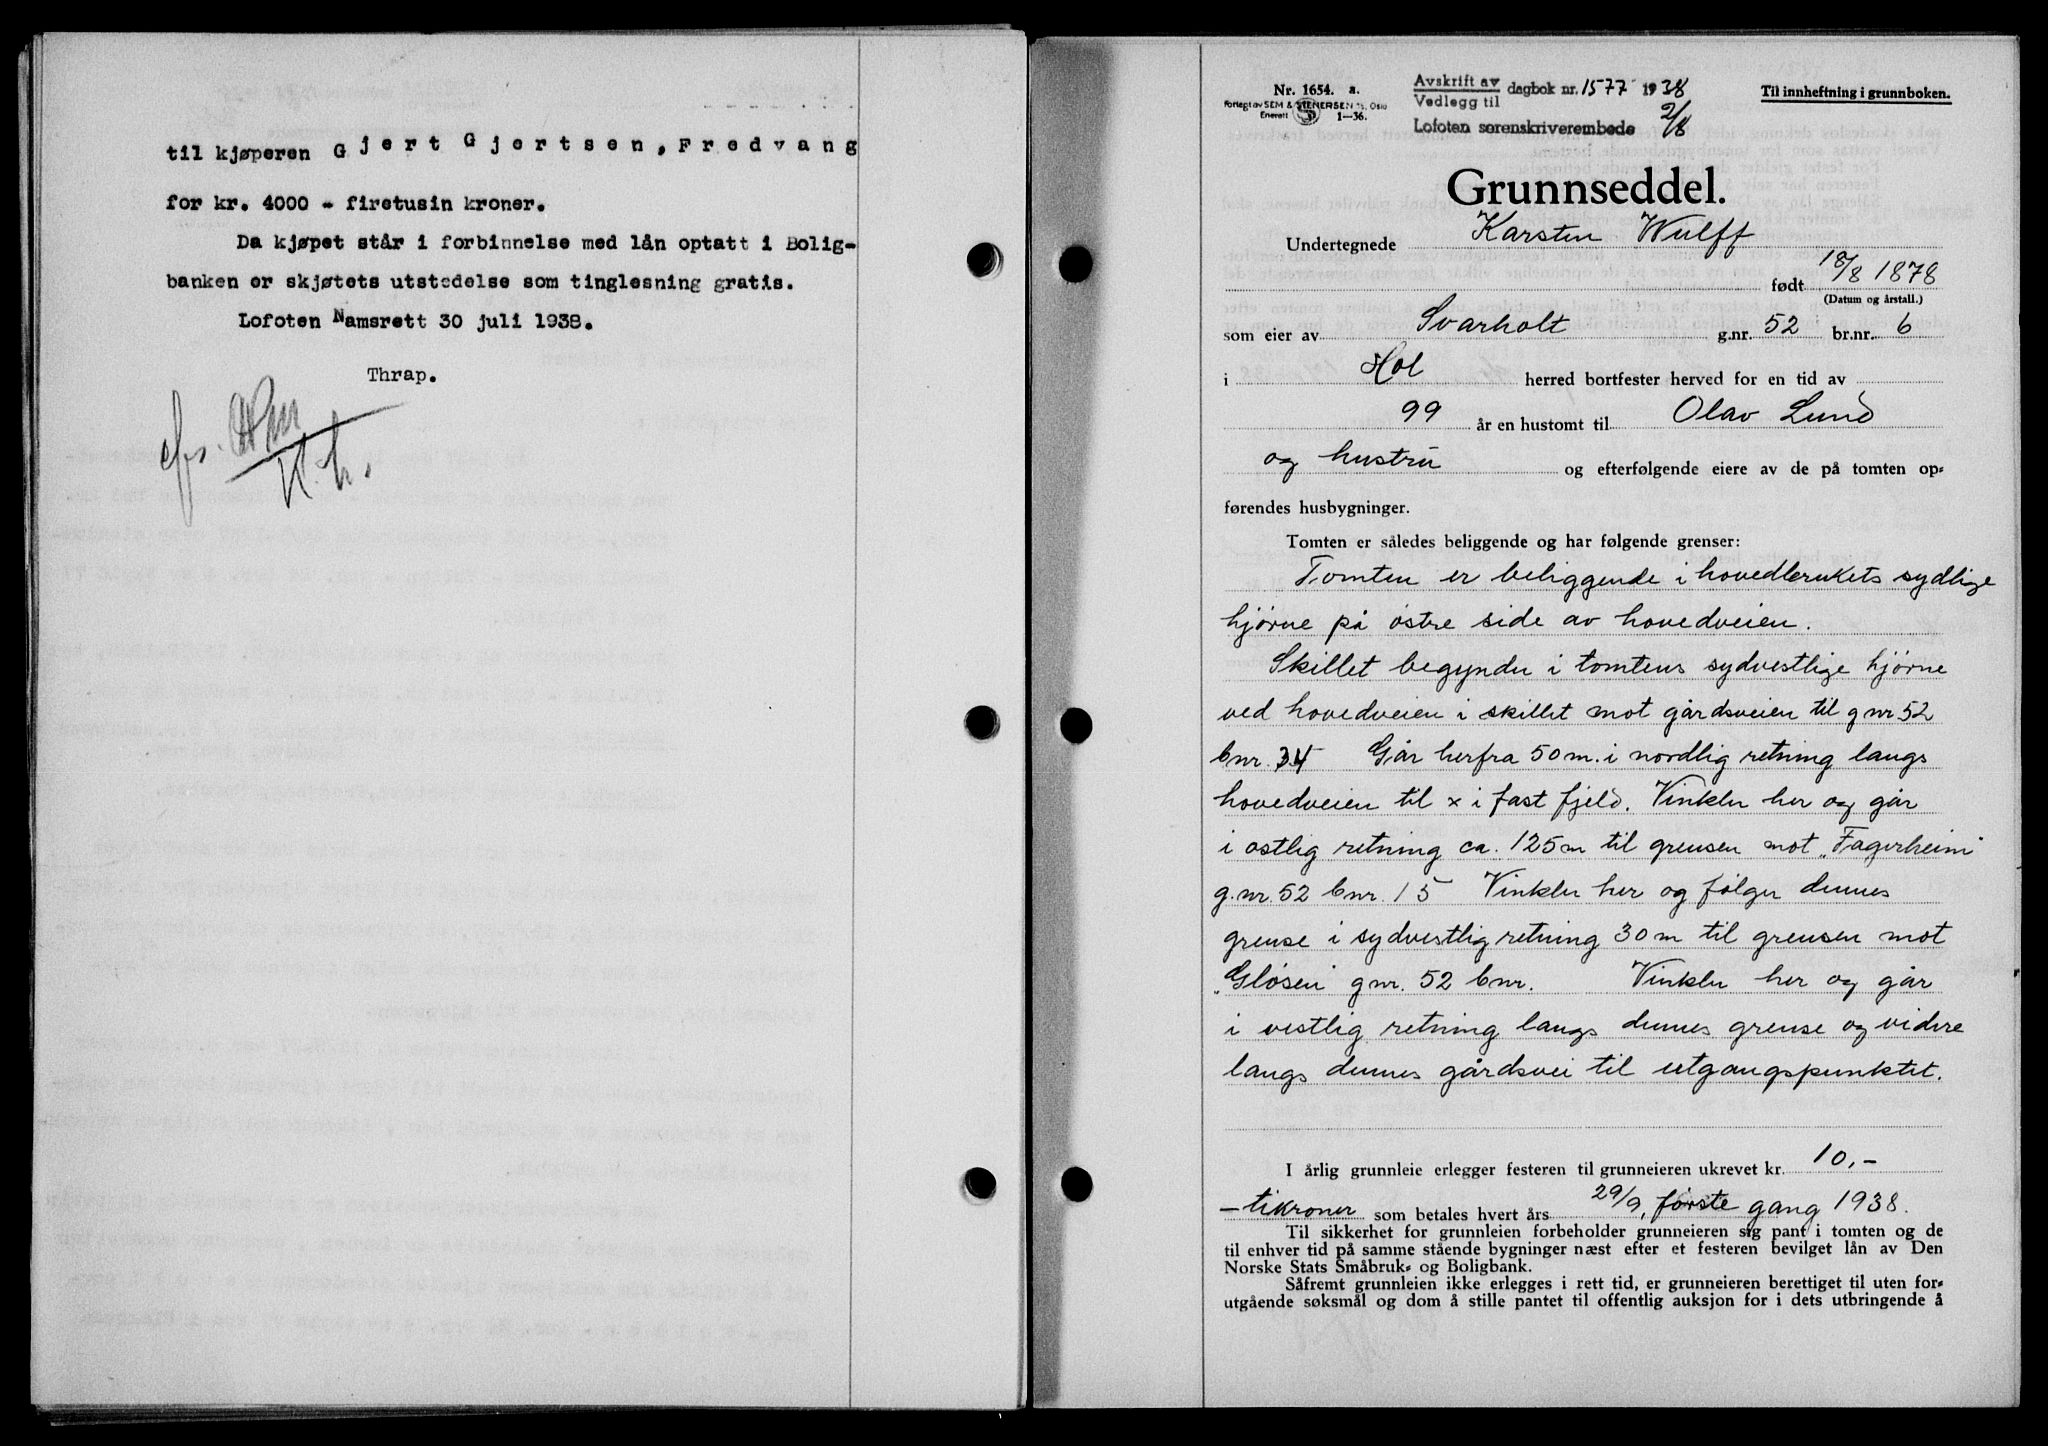 til kjøperen Gjert Gjertsen, Fredvang
for kr. 4000 - firetusin kroner.
Da kjøpet står i forbinnelse med lån optatt i Bolig-
banken er skjøtets utstedelse som tinglesning gratis.
Lofoten Namsrett 30 juli 1938.
Thrap.
Nr. 1654. a.
Forlegt av SEM & STENERSEN A/S, Oslo
Enerett 1—36.
Avskrift av
Vedlegg til
dagbok nr. 1577 1938
Lofoten sorenskriverembede 2/8
Til innheftning i grunnboken.
Grunnseddel.
Undertegnede Karsten Wulff
født 18/8 1878
(Datum og årstall.)
som eier av Svarholt g.nr. 52 br.nr. 6
i Hol herred bortfester herved for en tid av
99 år en hustomt til Olav Lund
og hustru og efterfølgende eiere av de på tomten op-
førendes husbygninger.
Tomten er således beliggende og har følgende grenser:
Tomten er beliggende i hovedbrukets sydlige
hjørne på østre side av hovedveien.
Skillet begynder i tomtens sydvestlige hjørne
ved hovedveien i skillet mot gårdsveien til gnr 52
bnr. 34 Går herfra 50 m. i nordlig retning langs
hovedveien til x i fast fjeld. Vinkler her og går
i østlig retning ca. 125 m til grensen mot "Fagerheim"
g.nr. 52 bnr. 15 Vinkler her og følger dennes
grense i sydvestlig retning 30 m til grensen mot
"Gløsen" gnr. 52 bnr. Vinkler her og går
i vestlig retning langs dennes grense og videre
langs dennes gårdsvei til utgangspunktet.
I årlig grunnleie erlegger festeren til grunneieren ukrevet kr. 10,-
- tikroner som betales hvert års 29/9, første gang 1938.
Til sikkerhet for grunnleien forbeholder grunneieren sig pant i tomten og de
til enhver tid på samme stående bygninger næst efter et festeren bevilget lån av Den
Norske Stats Småbruk- og Boligbank.
Såfremt grunnleien ikke erlegges i rett tid, er grunneieren berettiget til uten for-
utgående søksmål og dom å stille pantet til offentlig auksjon for i dets utbringende å